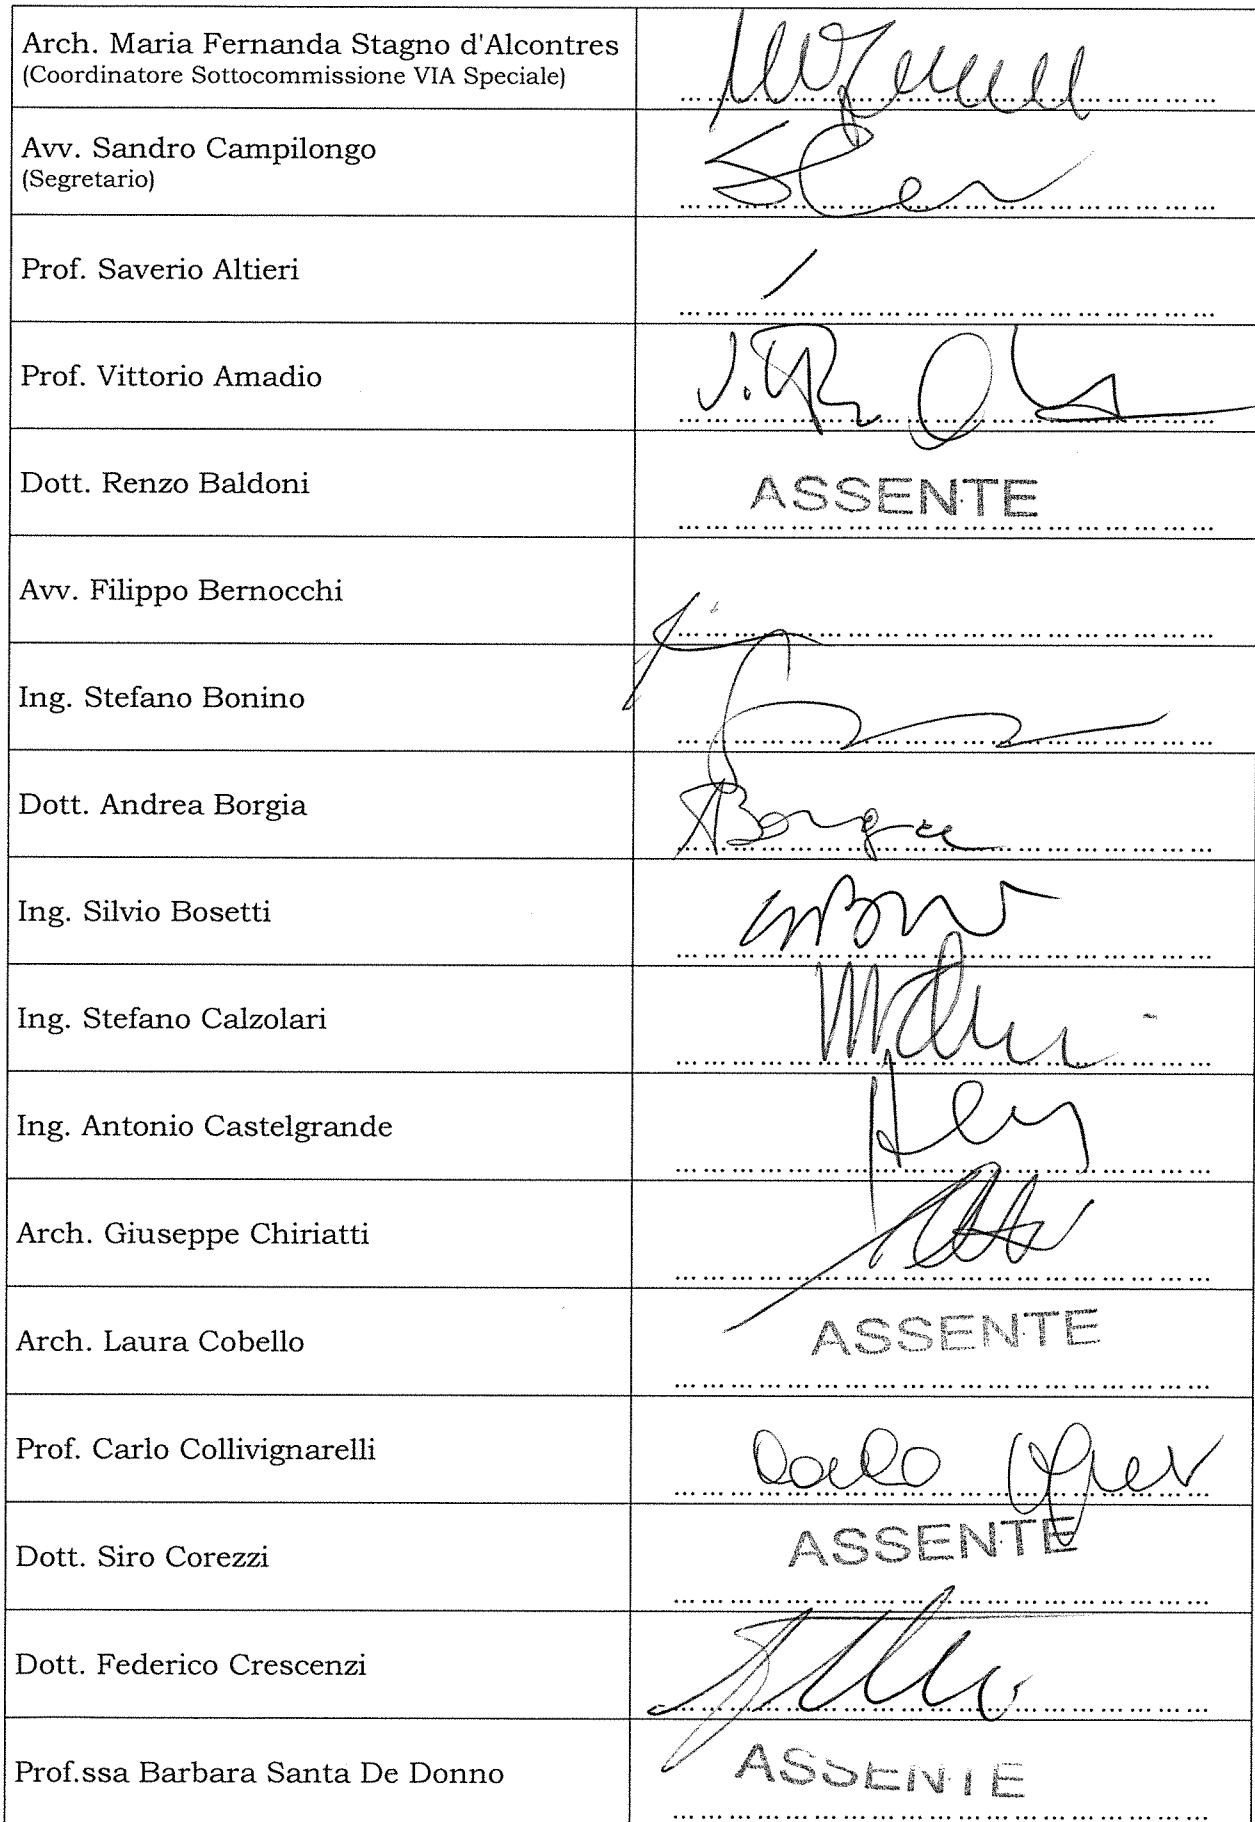 Arch. Maria Fernanda Stagno d'Alcontres
(Coordinatore Sottocommissione VIA Speciale)
Avv. Sandro Campilongo
(Segretario)
Prof. Saverio Altieri
Prof. Vittorio Amadio
Dott. Renzo Baldoni
ASSENTE
Avv. Filippo Bernocchi
Ing. Stefano Bonino
Dott. Andrea Borgia
ABorgia
Ing. Silvio Bosetti
Ing. Stefano Calzolari
Ing. Antonio Castelgrande
Arch. Giuseppe Chiriatti
Arch. Laura Cobello
ASSENTE
Prof. Carlo Collivignarelli
Carlo
Dott. Siro Corezzi
ASSENTE
Dott. Federico Crescenzi
Prof.ssa Barbara Santa De Donno
ASSENTE